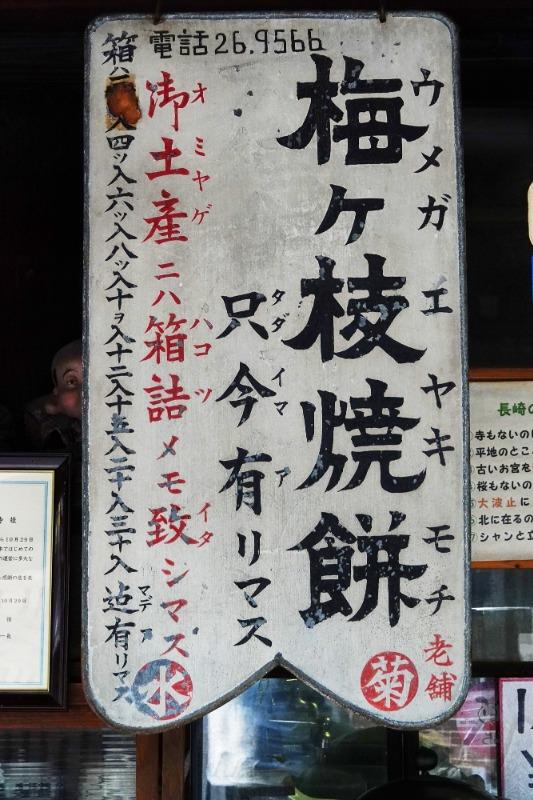 電話26.9566
梅ヶ枝焼餅
ウメガエヤキモチ
只今有リマス
タダイマア
御土産ニハ箱詰メモ致シマス
オミヤゲ ハコツ イタ
箱ハ 入四ッ入六ッ入八ッ入十ヲ入十二入十五入二十入三十入迠有リマス
マデア
老舗
菊
水
長崎の
寺もないの
平地のとこ
古いお宮を
桜もないの
大波止に
北に在るの
シャンと立
10月29日